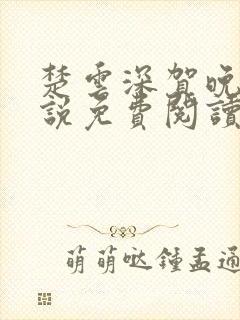 楚雲深賀晚
說免費閱讀
萌萌哒鍾孟通